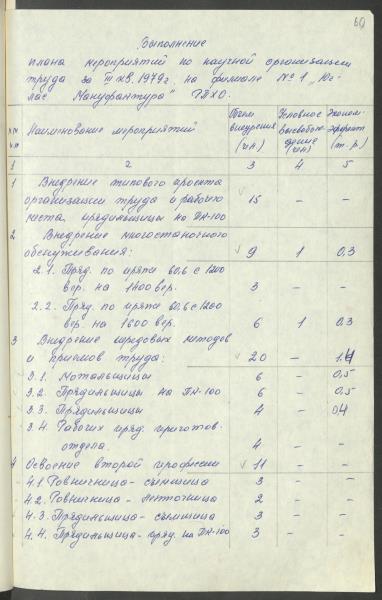 60
Выполнение
плана мероприятий по научной организации
труда за III кв. 1979 г. на филиале № 1 „Юг-
лас Мануфактура" РПХО.
№№ п.п. Наименование мероприятий Объем внедрения (чл) Условное высвобож-дение (чл) Эконом. эффект (т.р.)
1 2 3 4 5
1 Внедрение типового проекта
организации труда и рабочего
места прядильщицы на ПН-100 15 – –
2 Внедрение многостаночного
обслуживания: 9 1 0,3
2.1. Пряд. по пряже 60,6 с 1200
вер. на 1400 вер. 3 – –
2.2. Пряд. по пряже 60,6 с 1200
вер. на 1600 вер. 6 1 0,3
3 Внедрение передовых методов
и приемов труда: 20 – 1,4
3.1. Мотальщицы 6 – 0,5
3.2. Прядильщицы на ПН-100 6 – 0,5
3.3. Прядильщицы 4 – 0,4
3.4. Рабочих пряд. приготов.
отдела. 4 – –
4 Освоение второй профессии 11 – –
4.1 Ровничница-съемщица 3 – –
4.2. Ровничница-ленточница 2 – –
4.3. Прядильщица-съемщица 3 – –
4.4. Прядильщица-пряд. на ПН-100 3 – –